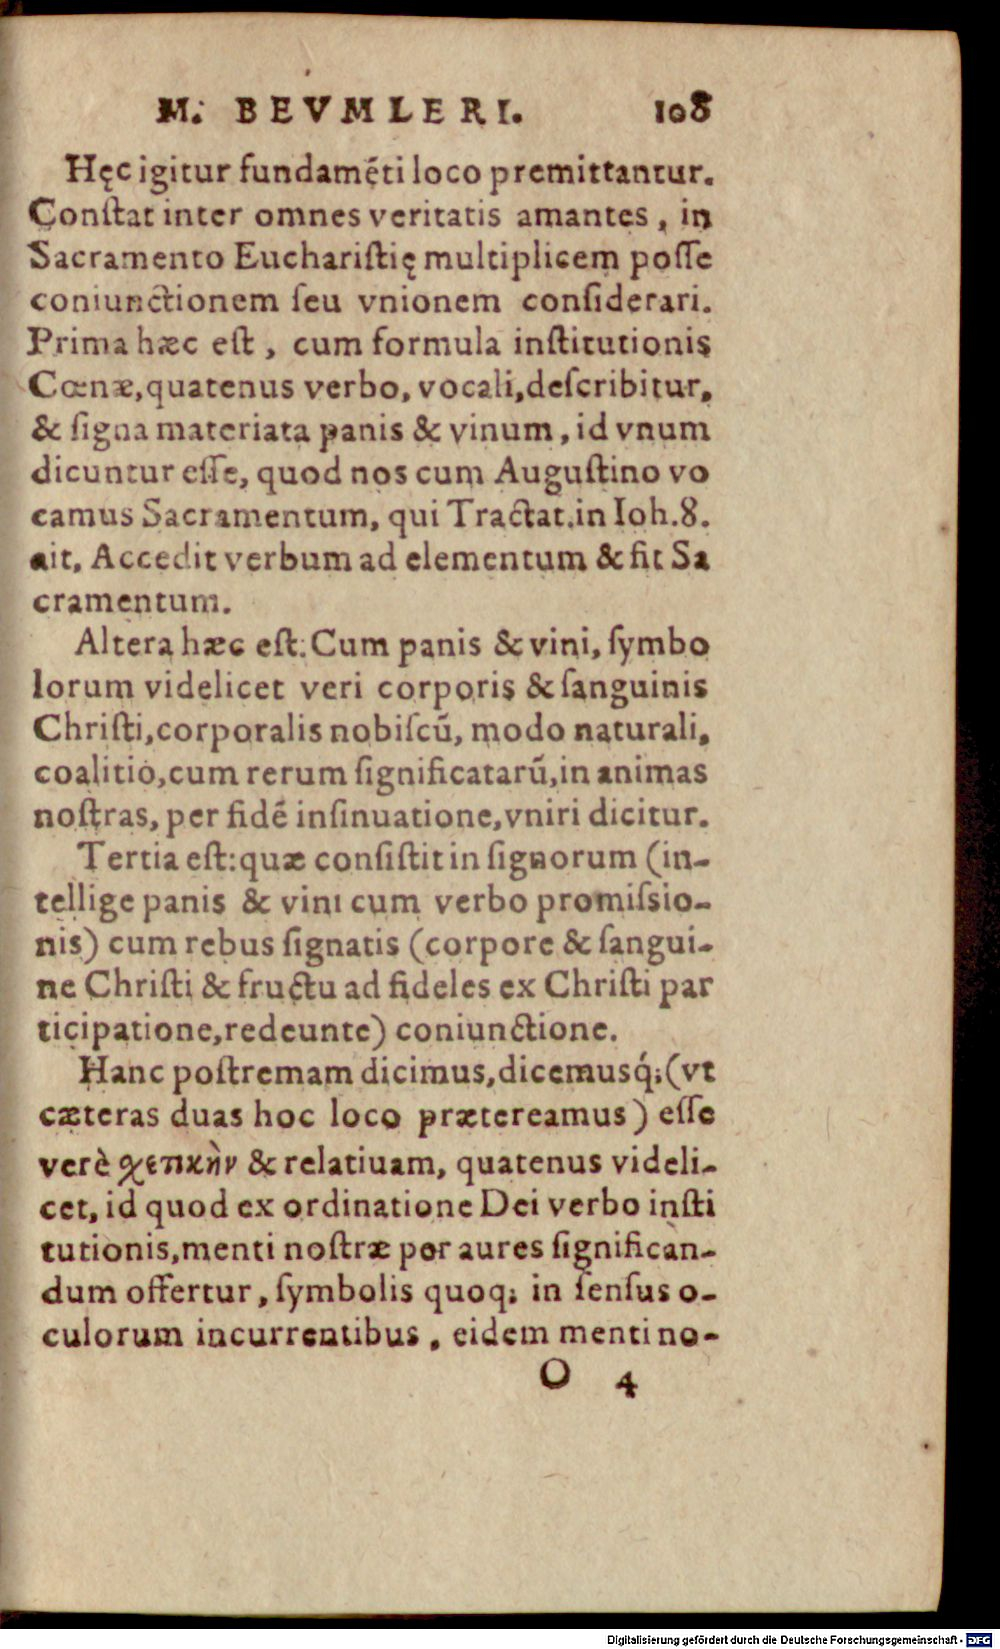 M. BEVMLERI. 108
Hęc igitur fundamẽti loco premittantur.
Conſtat inter omnes veritatis amantes, in
Sacramento Euchariſtię multiplicem poſſe
coniunctionem ſeu vnionem conſiderari.
Prima hæc eſt, cum formula inſtitutionis
Cœnæ, quatenus verbo, vocali, deſcribitur,
& ſigna materiata panis & vinum, id vnum
dicuntur eſſe, quod nos cum Auguſtino vo
camus Sacramentum, qui Tractat. in Ioh. 8.
ait, Accedit verbum ad elementum & fit Sa
cramentum.
Altera hæc eſt: Cum panis & vini, ſymbo
lorum videlicet veri corporis & ſanguinis
Chriſti, corporalis nobiſcũ, modo naturali,
coalitio, cum rerum ſignificatarũ, in animas
noſtras, per fidẽ inſinuatione, vniri dicitur.
Tertia eſt: quæ conſiſtit in ſignorum (in-
tellige panis & vini cum verbo promiſsio-
nis) cum rebus ſignatis (corpore & ſangui-
ne Chriſti & fructu ad fideles ex Chriſti par
ticipatione, redeunte) coniunctione.
Hanc poſtremam dicimus, dicemusq́; (vt
cæteras duas hoc loco prætereamus) eſſe
verè ϗετικὴν & relatiuam, quatenus videli-
cet, id quod ex ordinatione Dei verbo inſti
tutionis, menti noſtræ per aures ſignifican-
dum offertur, ſymbolis quoq; in ſenſus o-
culorum incurrentibus, eidem menti no-
O 4
Digitalisierung gefördert durch die Deutsche Forschungsgemeinschaft - DFG